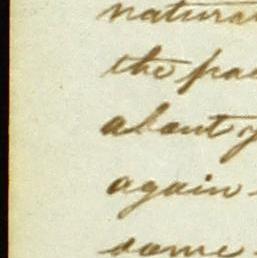 natura
the pa
about y
again -
same -